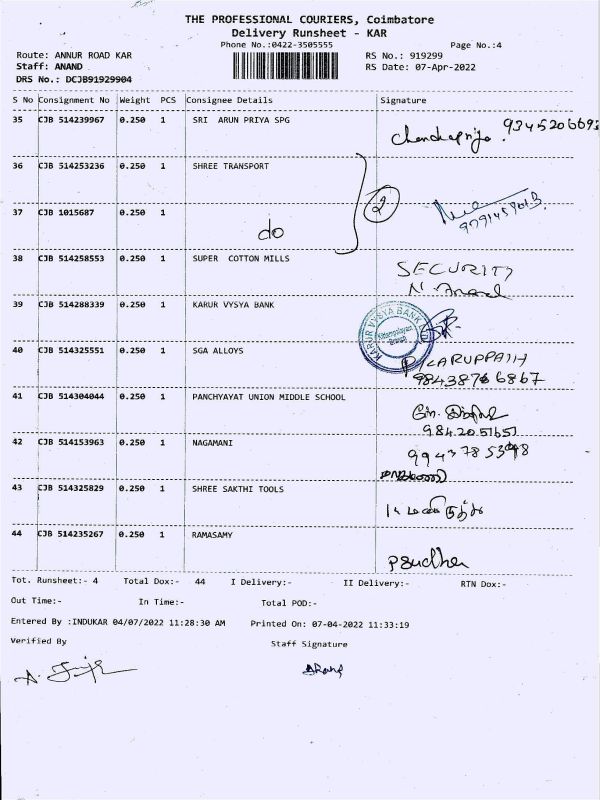 THE PROFESSIONAL COURIERS, Coimbatore
Delivery Runsheet - KAR
Phone No.:0422-3505555 Page No.:4
Route: ANNUR ROAD KAR RS No.: 919299
Staff: ANAND RS Date: 07-Apr-2022
DRS No.: DCJB91929904
S No Consignment No Weight PCS Consignee Details Signature
35 CJB 514239967 0.250 1 SRI ARUN PRIYA SPG
36 CJB 514253236 0.250 1 SHREE TRANSPORT
2
37 CJB 1015687 0.250 1
do
38 CJB 514258553 0.250 1 SUPER COTTON MILLS SECURITY
N Anand
39 CJB 514288339 0.250 1 KARUR VYSYA BANK
KARUR VYSYA BANK LTD
Branch
40 CJB 514325551 0.250 1 SGA ALLOYS
41 CJB 514304044 0.250 1 PANCHYAYAT UNION MIDDLE SCHOOL
42 CJB 514153963 0.250 1 NAGAMANI
43 CJB 514325829 0.250 1 SHREE SAKTHI TOOLS
44 CJB 514235267 0.250 1 RAMASAMY
Psudha
Tot. Runsheet:- 4 Total Dox:- 44 I Delivery:- II Delivery:- RTN Dox:-
Out Time:- In Time:- Total POD:-
Entered By :INDUKAR 04/07/2022 11:28:30 AM Printed On: 07-04-2022 11:33:19
Verified By Staff Signature